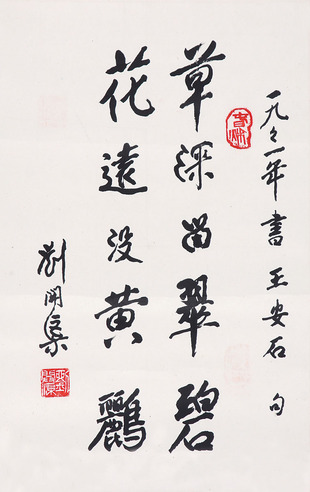 一九々一年書王安石句
草深留翠碧
花遠没黃鸝
劉開渠